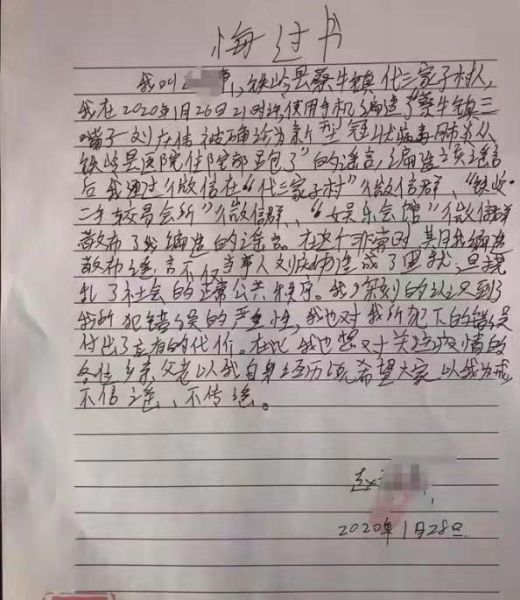 悔过书
我叫 ,铁岭县蔡牛镇代三家子村人,
我在2020年1月26日21时许,使用手机编造了"蔡牛镇三
嘴子刘庆伟被确诊为新型冠状病毒肺炎从
铁岭县医院住院部包了"的谣言,编造该谣言
后我通过微信在"代三家子村"微信群、"铁岭
二手交易会所"微信群、"娱乐会馆"微信群
散布了我编造的谣言。在这个非常时期我编造
散布谣言不仅当事人刘庆伟造成了困扰,且扰
乱了社会的正常公共秩序。我深刻的认识到了
我所犯错误的严重性,我也对我所犯下的错误
付出了应有的代价。在此我也想对关注疫情的
各位乡亲父老以我自身经历说希望大家以我为戒
不信谣、不传谣。
赵
2020年1月28日